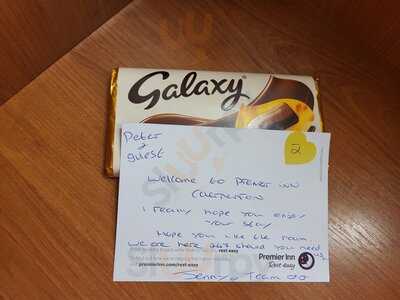 Galaxy
Peter
& guest
2
Welcome to Premier Inn
I really hope you enjoy
your stay
Hope you like the room
we are here 24/7 should you need
Premier Inn
Rest easy
rest easy
premierinn.com/rest-easy
Team